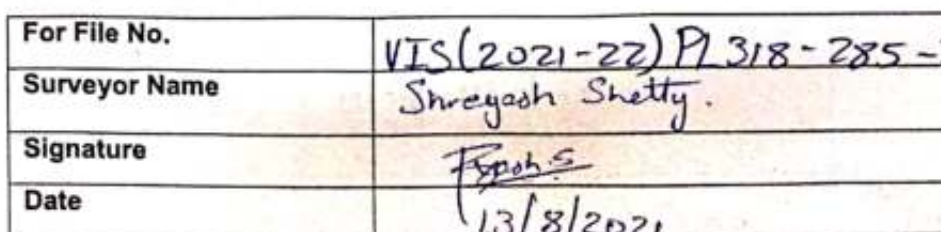 For File No. VIS(2021-22) PL318-285-
Surveyor Name Shreyash Shetty.
Signature
Date 13/8/2021